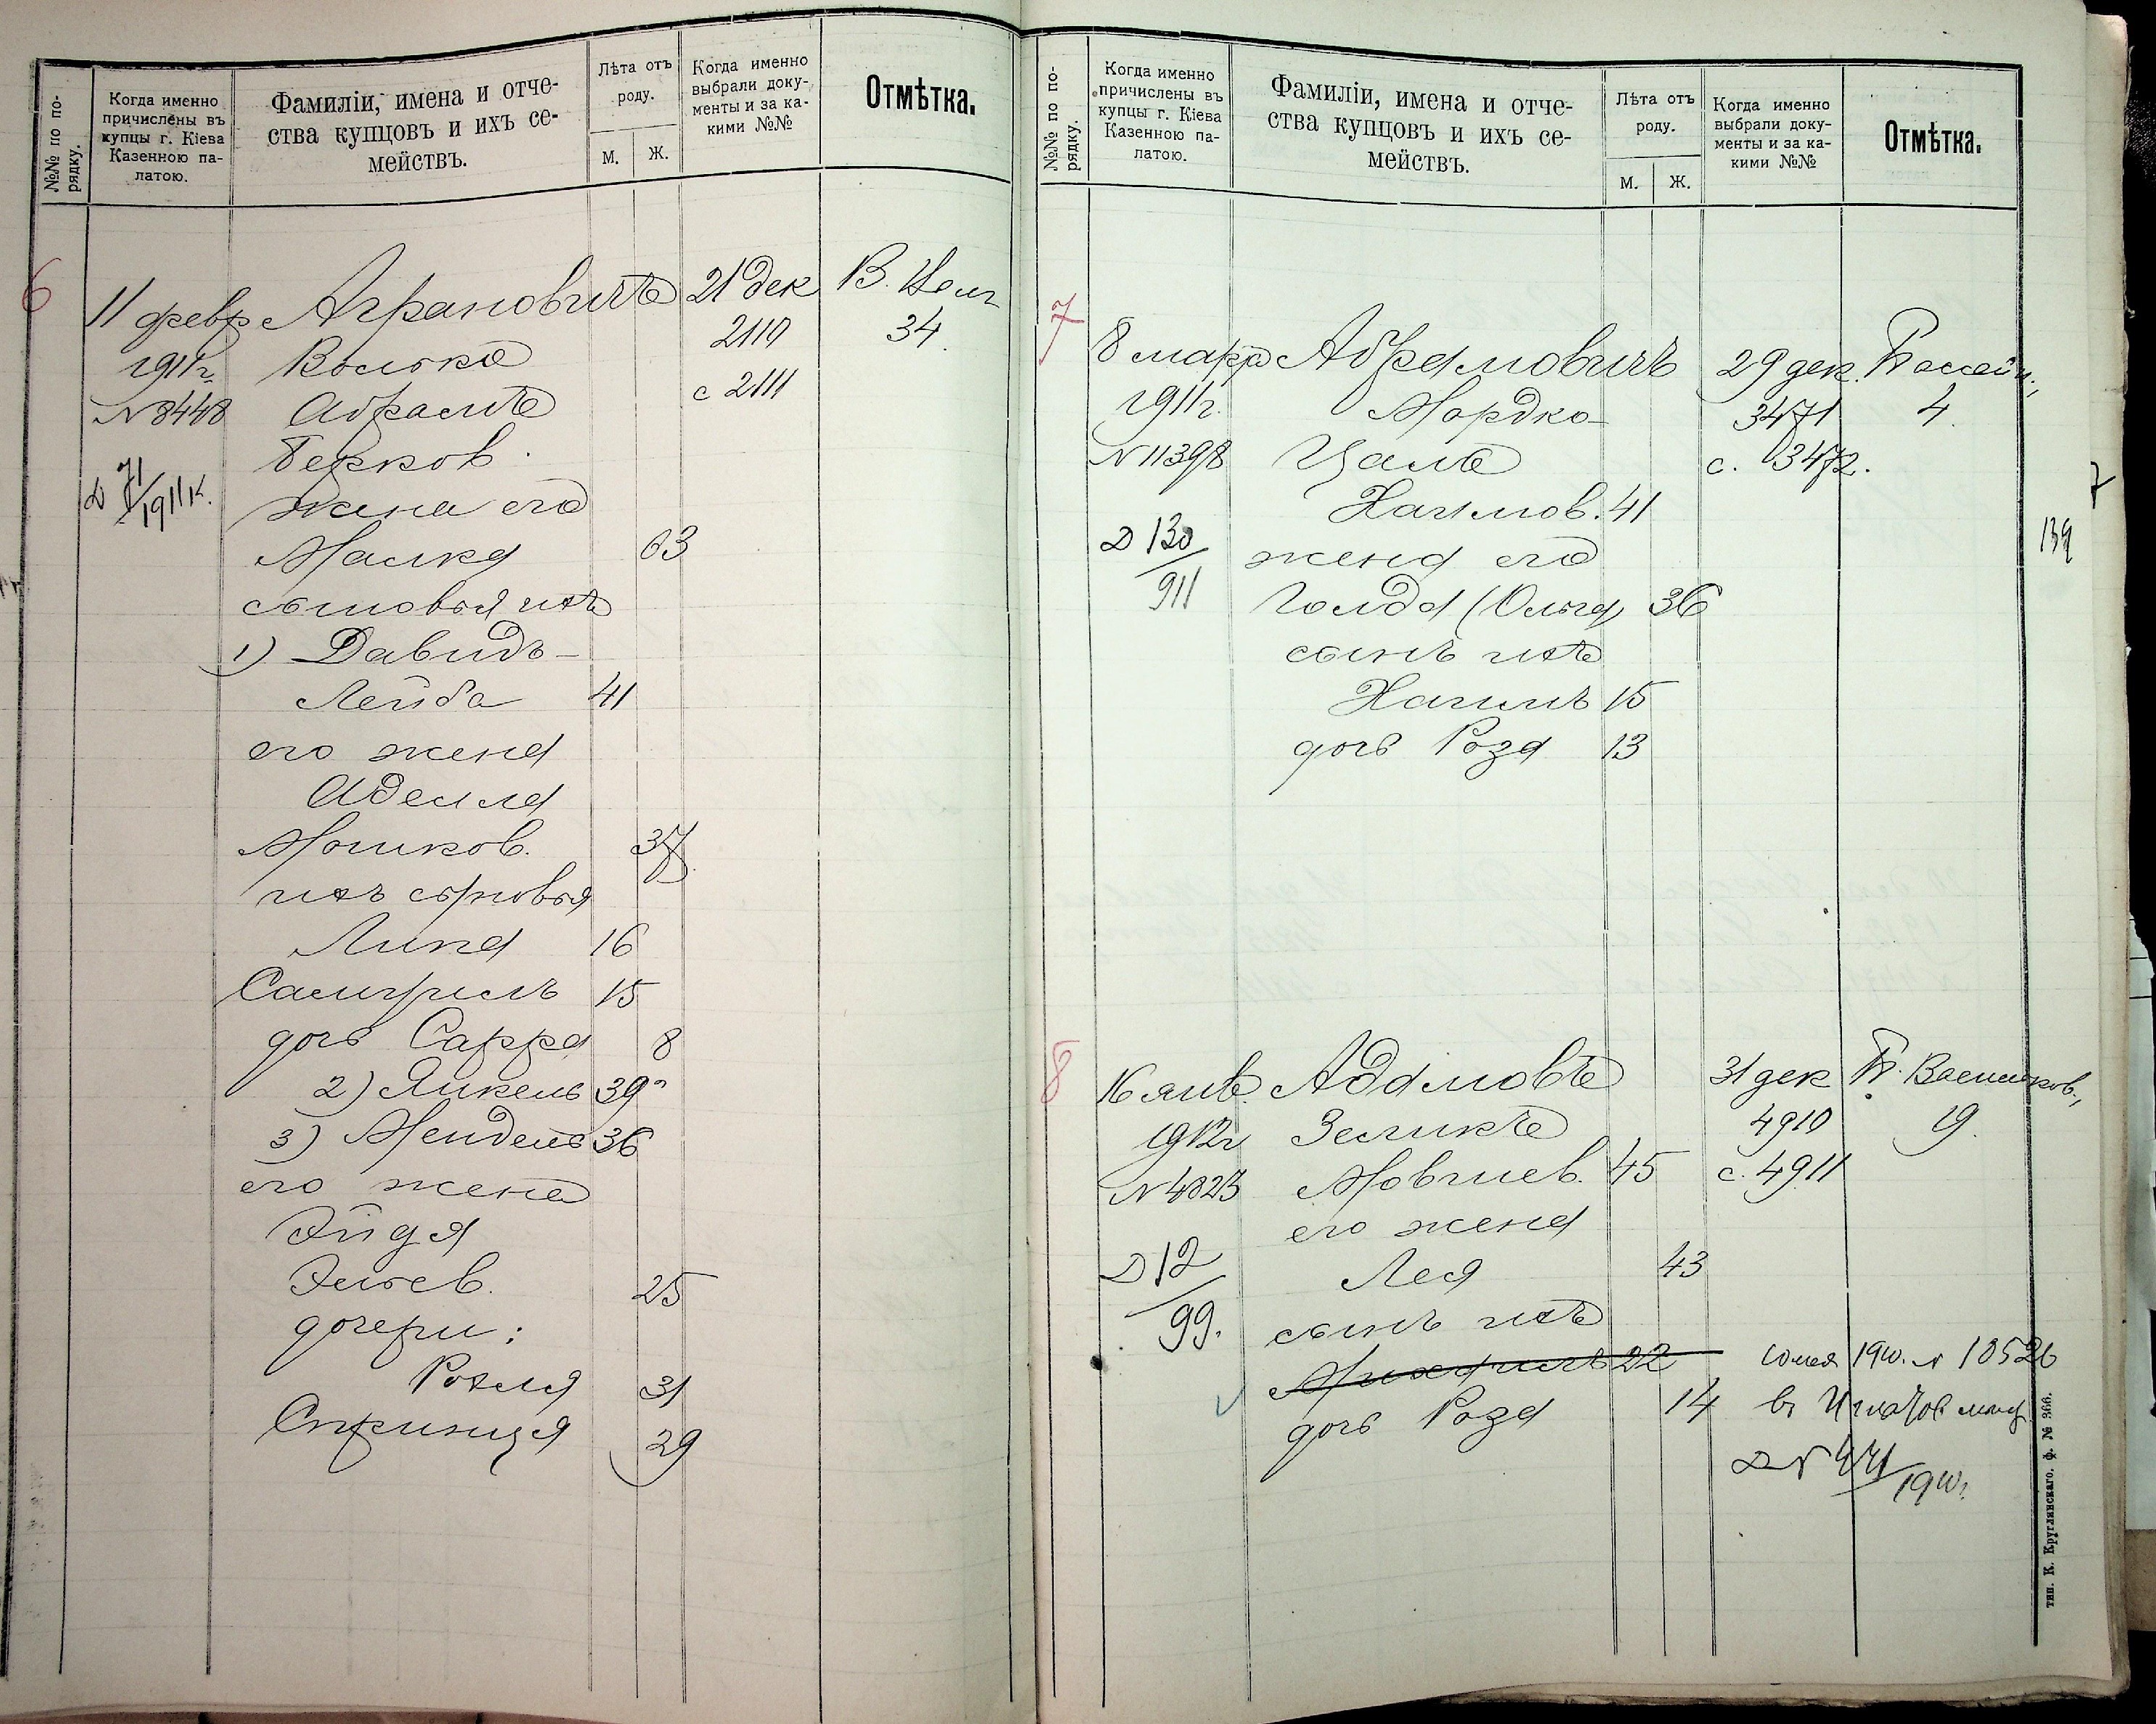 №№ по по-
рядку.
Когда именно
причислены въ
купцы г. Кіева
Казенною па-
латою.
Фамиліи, имена и отче-
ства купцовъ и ихъ се-
мействъ.
Лѣта отъ
роду.
М.
Ж.
Когда именно
выбрали доку-
менты и за ка-
кими №№
Отмѣтка.
6
11 февр
1911г.
№ 8448
Д 71/1911 г.
Аграновичъ
Волько
Абрамъ
Берков.
жена его
Малка 63
сыновья ихъ
1) Давидъ-
Лейба 41
его жена
Аделла
Мошков. 37
ихъ сыновья
Липа 16
Самуилъ 15
дочь Сарра 8
2) Янкель 39
3) Мендель 36
его жена
Эйдя
Эльев. 25
дочери:
Рохля 31
Стринця 29
21 дек
2110
с 2111
34.
№№ по по-
рядку.
Когда именно
причислены въ
купцы г. Кіева
Казенною па-
латою.
Фамиліи, имена и отче-
ства купцовъ и ихъ се-
мействъ.
Лѣта отъ
роду.
М.
Ж.
Когда именно
выбрали доку-
менты и за ка-
кими №№
Отмѣтка.
7
8 марта
1911г.
№ 11398
Д 130/911
Абрамовичъ
Мордко-
Цаль
Хаимов. 41
жена его
Голда (Ольга) 36
сынъ ихъ
Хаимъ 15
дочь Роза 13
29 дек.
3471
с. 3472.
Бассейн.,
4.
7
139
8
16 янв.
1912г
№ 4823
Д 12/99.
Адамовъ
Зеликъ
Мовшев. 45
его жена
Лея 43
сынъ ихъ
Михаилъ 22
дочь Роза 14
31 дек
4910
с. 4911
Б. Васильков.,
19.
1910. № 10526
Д № 441/1910г.
тип. К. Круглянскаго. ф. № 366.